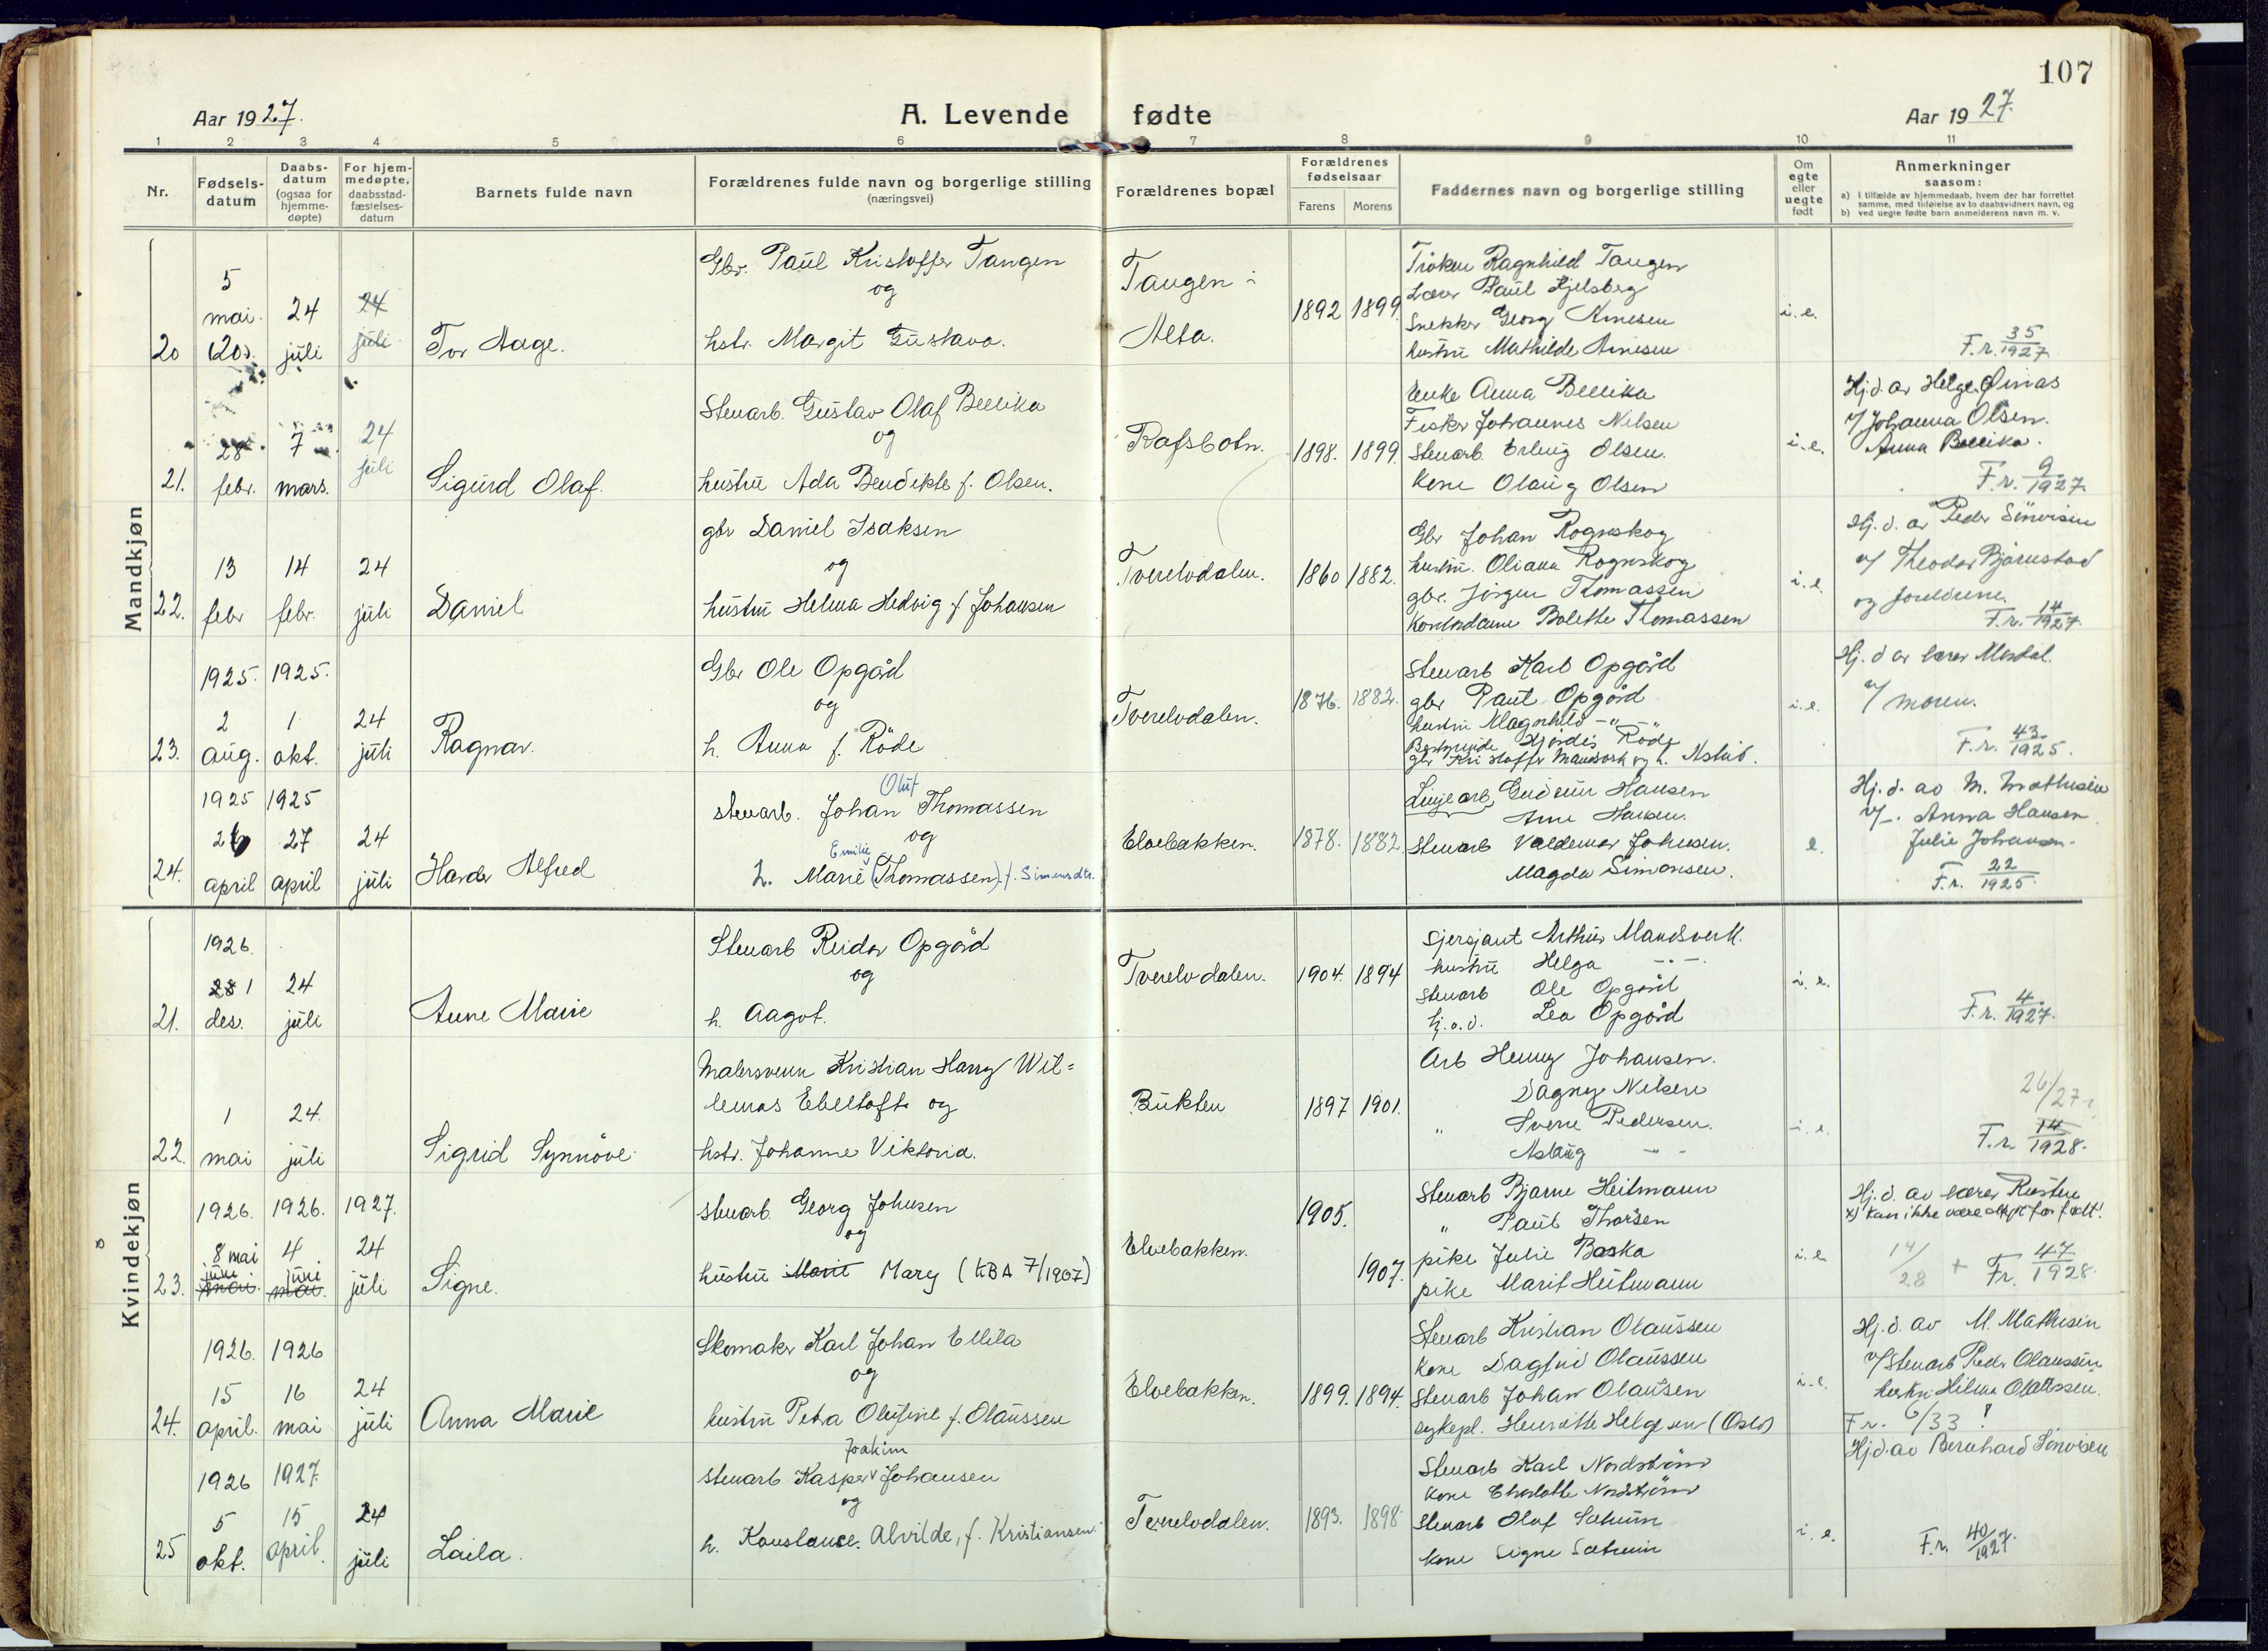 107
Aar 1927.
A. Levende fødte
Aar 1927.
1 2 3 4 5 6 7 8 9 10 11
Nr.
Fødsels-
datum
Daabs-
datum
(ogsaa for
hjemme-
døpte)
For hjem-
medøpte,
daabsstad-
fæstelses-
datum
Barnets fulde navn
Forældrenes fulde navn og borgerlige stilling
(næringsvei)
Forældrenes bopæl
Forældrenes
fødselsaar
Farens Morens
Faddernes navn og borgerlige stilling
Om
egte
eller
uegte
født
Anmerkninger
saasom:
a) i tilfælde av hjemmedaab, hvem der har forrettet
samme, med tilføielse av to daabsvidners navn, og
b) ved uegte fødte barn anmelderens navn m. v.
Mandkjøn
20
5
mai.
(20).
24
juli
24
juli
Tor Aage.
Gbr. Paul Kristoffer Tangen
og
hstr. Margit Gustava.
Tangen i
Alta.
1892 1899.
Frøken Ragnhild Tangen
Lærer Paul Hjelsberg
Snekker Georg Arnesen
hustru Mathilde Arnesen
i. e.
F. r. 35/1927
21.
28.
febr.
7
mars.
24
juli
Sigurd Olaf.
Stenarb. Gustav Olaf Bellika
og
hustru Ada Bendikte f. Olsen.
Rafsbotn.
1898. 1899.
Enke Anna Bellika
Fisker Johannes Nilsen
Stenarb. Erling Olsen.
Kone Olaug Olsen
i. e.
Hj. d. av Helge Øinas
v/ Johanna Olsen.
Anna Bellika.
F. r. 9/1927
22.
13
febr
14
febr.
24
juli
Daniel
gbr Daniel Isaksen
og
hustru Helma Hedvig f. Johansen
Tverelvdalen.
1860 1882.
Gbr Johan Rognskog
hustru. Oliana Rognskog
gbr. Jörgen Thomassen
Kontordame Bolette Thomassen
i. e.
Hj. d. av Peder Simonsen
v/ Theodor Bjørnstad
og foreldrene.
F. r. 14/1927
23.
1925.
2
aug.
1925.
1
okt.
24
juli
Ragnar.
Gbr Ole Opgård
og
h. Anna f. Röde
Tverelvdalen.
1876. 1882.
Stenarb Karl Opgård
gbr Paul Opgård
hustru Magnhild - " - "
Hjördis Röde
gbr Kristoffer Mandsverk og h. Astrid.
i. e.
Hj. d. av lærer Mosdal.
v/ moren.
F. r. 43/1925.
24.
1925
26
april
1925
27
april
24
juli
Harder Alfred
Oluf
stenarb. Johan Thomassen
og
Emilie
h. Marie (Thomassen) f. Simonsdtr.
Elvebakken.
1878. 1882.
Linjearb, Gudmun Hansen
Anne Hansen.
Stenarb Valdemar Johnsen.
Magda Simonsen.
e.
Hj. d. av M. Mathisen
v/. Anna Hansen
Julie Johansen.
F. r. 22/1925.
Kvindekjøn
21.
1926.
28 1
des.
24
juli
Anne Marie
Stenarb Reidar Opgård
og
h. Aagot.
Tverelvdalen.
1904. 1894
Sjersjant Arthur Mandsverk.
hustru Helga - " -
stenarb Ole Opgård
hj. o. d. Lea Opgård
i. e.
F. r. 4/1927.
22.
1
mai
24.
juli
Sigrid Synnöve.
Malersvenn Kristian Harry Wil=
lemas Ebeltoft og
hstr. Johanne Viktoria.
Bukten
1897 1901.
Arb Henny Johansen.
Dagny Nilsen
" Sverre Pedersen.
Aslaug - " -
i. e.
26/27
F. r. 14/1928.
23.
1926.
8 mai
juni
mai.
1926.
4
juni
mai.
1927.
24
juli
Signe.
stenarb. Georg Johnsen
og
hustru Marit Mary (KBA 7/1907)
Elvebakken.
1905.
1907.
Stenarb Bjarne Heitmann
" Paul Thorsen
pike Julie Baska
pike Marit Heitmann
i. e.
Hj. d. av lærer Rustne
x) Kan ikke være døpt før født!
14/28 + Fr. 47/1928
24.
1926.
15
april.
1926
16
mai
24
juli
Anna Marie
Skomaker Karl Johan Ellila
og
hustru Petra Olufine f. Olaussen
Elvebakken.
1899. 1894.
Stenarb Kristian Olaussen
Kone Dagfrid Olaussen
Stenarb Johan Olaussen
sykepl. Henriette Helgesen (Oslo)
i. e.
Hj. d. av M. Mathisen
v/ Stenarb Peder Olaussen
hustru Hilma Olaussen.
F. r. 6/33 !
25
1926
5
okt.
1927.
15
april.
24
juli
Laila.
Joakim
stenarb Kasper v Johansen
og
h. Konstance. Alvilde, f. Kristiansen.
Tverelvdalen.
1893. 1898
Stenarb Karl Nordström
Kone Charlotte Nordström
Stenarb Olaf Sætrum
Kone Signe Sætrum
i. e.
Hj. d. av Bernhard Simonsen
F. r. 40/1927.